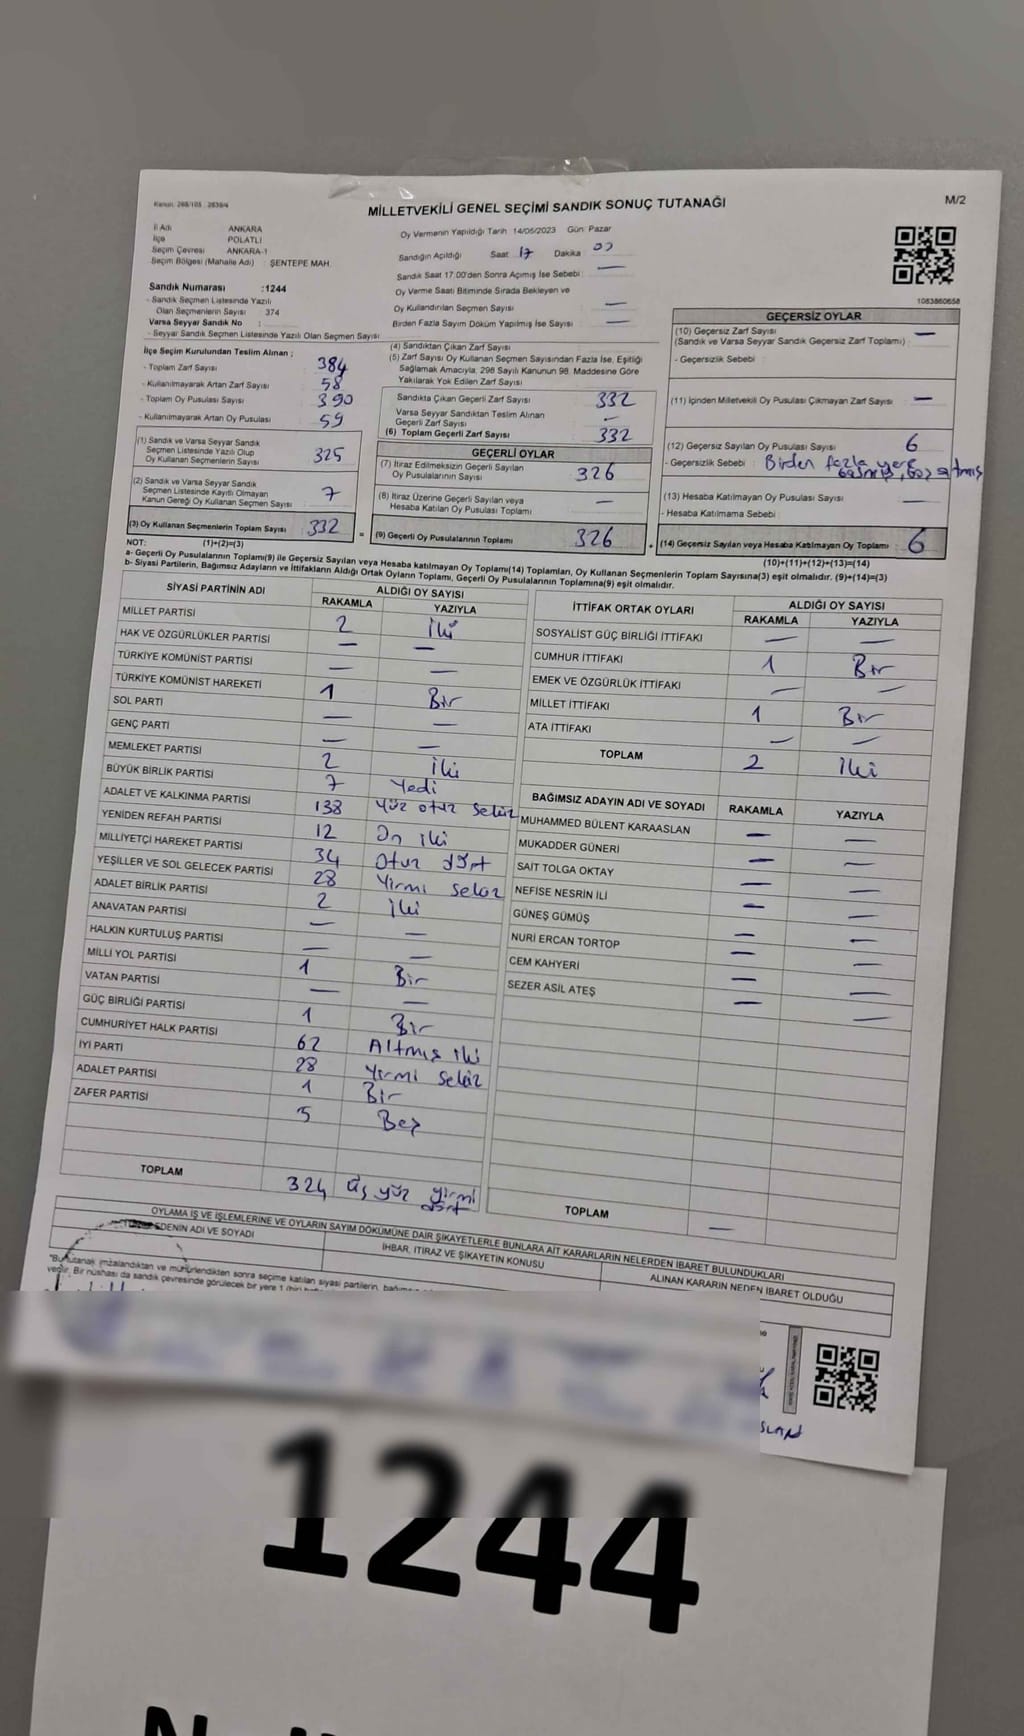 Kanun: 298/105 , 2839/4
M/2
MİLLETVEKİLİ GENEL SEÇİMİ SANDIK SONUÇ TUTANAĞI
İl Adı ANKARA
İlçe POLATLI
Seçim Çevresi ANKARA-1
Seçim Bölgesi (Mahalle Adı) : ŞENTEPE MAH.
Sandık Numarası :1244
- Sandık Seçmen Listesinde Yazılı
Olan Seçmenlerin Sayısı 374
Varsa Seyyar Sandık No :
- Seyyar Sandık Seçmen Listesinde Yazılı Olan Seçmen Sayısı
Oy Vermenin Yapıldığı Tarih 14/05/2023 Gün: Pazar
Sandığın Açıldığı Saat 17 Dakika
Sandık Saat 17:00'den Sonra Açımış İse Sebebi : —
Oy Verme Saati Bitiminde Sırada Bekleyen ve
Oy Kullandırılan Seçmen Sayısı —
Birden Fazla Sayım Döküm Yapılmış İse Sayısı —
1083860658
İlçe Seçim Kurulundan Teslim Alınan ;
- Toplam Zarf Sayısı 384
- Kullanılmayarak Artan Zarf Sayısı 58
- Toplam Oy Pusulası Sayısı 390
- Kullanılmayarak Artan Oy Pusulası 59
(1) Sandık ve Varsa Seyyar Sandık
Seçmen Listesinde Yazılı Olup
Oy Kullanan Seçmenlerin Sayısı 325
(2) Sandık ve Varsa Seyyar Sandık
Seçmen Listesinde Kayıtlı Olmayan
Kanun Gereği Oy Kullanan Seçmen Sayısı 7
(3) Oy Kullanan Seçmenlerin Toplam Sayısı 332 =
(4) Sandıktan Çıkan Zarf Sayısı
(5) Zarf Sayısı Oy Kullanan Seçmen Sayısından Fazla İse, Eşitliği
Sağlamak Amacıyla; 298 Sayılı Kanunun 98. Maddesine Göre
Yakılarak Yok Edilen Zarf Sayısı
Sandıkta Çıkan Geçerli Zarf Sayısı 332
Varsa Seyyar Sandıktan Teslim Alınan
Geçerli Zarf Sayısı —
(6) Toplam Geçerli Zarf Sayısı 332
GEÇERLİ OYLAR
(7) İtiraz Edilmeksizin Geçerli Sayılan
Oy Pusulalarının Sayısı 326
(8) İtiraz Üzerine Geçerli Sayılan veya
Hesaba Katılan Oy Pusulası Toplamı —
(9) Geçerli Oy Pusulalarının Toplamı 326 +
GEÇERSİZ OYLAR
(10) Geçersiz Zarf Sayısı —
(Sandık ve Varsa Seyyar Sandık Geçersiz Zarf Toplamı) :
- Geçersizlik Sebebi :
(11) İçinden Milletvekili Oy Pusulası Çıkmayan Zarf Sayısı —
(12) Geçersiz Sayılan Oy Pusulası Sayısı 6
- Geçersizlik Sebebi : Birden fazla yere
basmış,
(13) Hesaba Katılmayan Oy Pusulası Sayısı —
- Hesaba Katılmama Sebebi :
(14) Geçersiz Sayılan veya Hesaba Katılmayan Oy Toplamı 6
NOT: (1)+(2)=(3)
(10)+(11)+(12)+(13)=(14)
a- Geçerli Oy Pusulalarının Toplamı(9) ile Geçersiz Sayılan veya Hesaba katılmayan Oy Toplamı(14) Toplamları, Oy Kullanan Seçmenlerin Toplam Sayısına(3) eşit olmalıdır. (9)+(14)=(3)
b- Siyasi Partilerin, Bağımsız Adayların ve İttifakların Aldığı Ortak Oyların Toplamı, Geçerli Oy Pusulalarının Toplamına(9) eşit olmalıdır.
SİYASİ PARTİNİN ADI ALDIĞI OY SAYISI
RAKAMLA YAZIYLA
MİLLET PARTİSİ 2 İki
HAK VE ÖZGÜRLÜKLER PARTİSİ — —
TÜRKİYE KOMÜNİST PARTİSİ — —
TÜRKİYE KOMÜNİST HAREKETİ 1 Bir
SOL PARTİ — —
GENÇ PARTİ — —
MEMLEKET PARTİSİ 2 İki
BÜYÜK BİRLİK PARTİSİ 7 Yedi
ADALET VE KALKINMA PARTİSİ 138 Yüz otuz sekiz
YENİDEN REFAH PARTİSİ 12 On iki
MİLLİYETÇİ HAREKET PARTİSİ 34 Otuz dört
YEŞİLLER VE SOL GELECEK PARTİSİ 28 Yirmi sekiz
ADALET BİRLİK PARTİSİ 2 İki
ANAVATAN PARTİSİ — —
HALKIN KURTULUŞ PARTİSİ — —
MİLLİ YOL PARTİSİ 1 Bir
VATAN PARTİSİ — —
GÜÇ BİRLİĞİ PARTİSİ 1 Bir
CUMHURİYET HALK PARTİSİ 62 Altmış iki
İYİ PARTİ 28 Yirmi sekiz
ADALET PARTİSİ 1 Bir
ZAFER PARTİSİ 5 Beş
TOPLAM 324 üç yüz yirmi
dört
İTTİFAK ORTAK OYLARI ALDIĞI OY SAYISI
RAKAMLA YAZIYLA
SOSYALİST GÜÇ BİRLİĞİ İTTİFAKI — —
CUMHUR İTTİFAKI 1 Bir
EMEK VE ÖZGÜRLÜK İTTİFAKI — —
MİLLET İTTİFAKI 1 Bir
ATA İTTİFAKI — —
TOPLAM 2 İki
BAĞIMSIZ ADAYIN ADI VE SOYADI RAKAMLA YAZIYLA
MUHAMMED BÜLENT KARAASLAN — —
MUKADDER GÜNERİ — —
SAİT TOLGA OKTAY — —
NEFİSE NESRİN İLİ — —
GÜNEŞ GÜMÜŞ — —
NURİ ERCAN TORTOP — —
CEM KAHYERİ — —
SEZER ASİL ATEŞ — —
TOPLAM —
OYLAMA İŞ VE İŞLEMLERİNE VE OYLARIN SAYIM DÖKÜMÜNE DAİR ŞİKAYETLERLE BUNLARA AİT KARARLARIN NELERDEN İBARET BULUNDUKLARI
EDENİN ADI VE SOYADI İHBAR, İTİRAZ VE ŞİKAYETİN KONUSU ALINAN KARARIN NEDEN İBARET OLDUĞU
"Bu tutanak imzalandıktan ve mühürlendikten sonra seçime katılan siyasi partilerin,
Bir nüshası da sandık çevresinde görülecek bir yere
1244